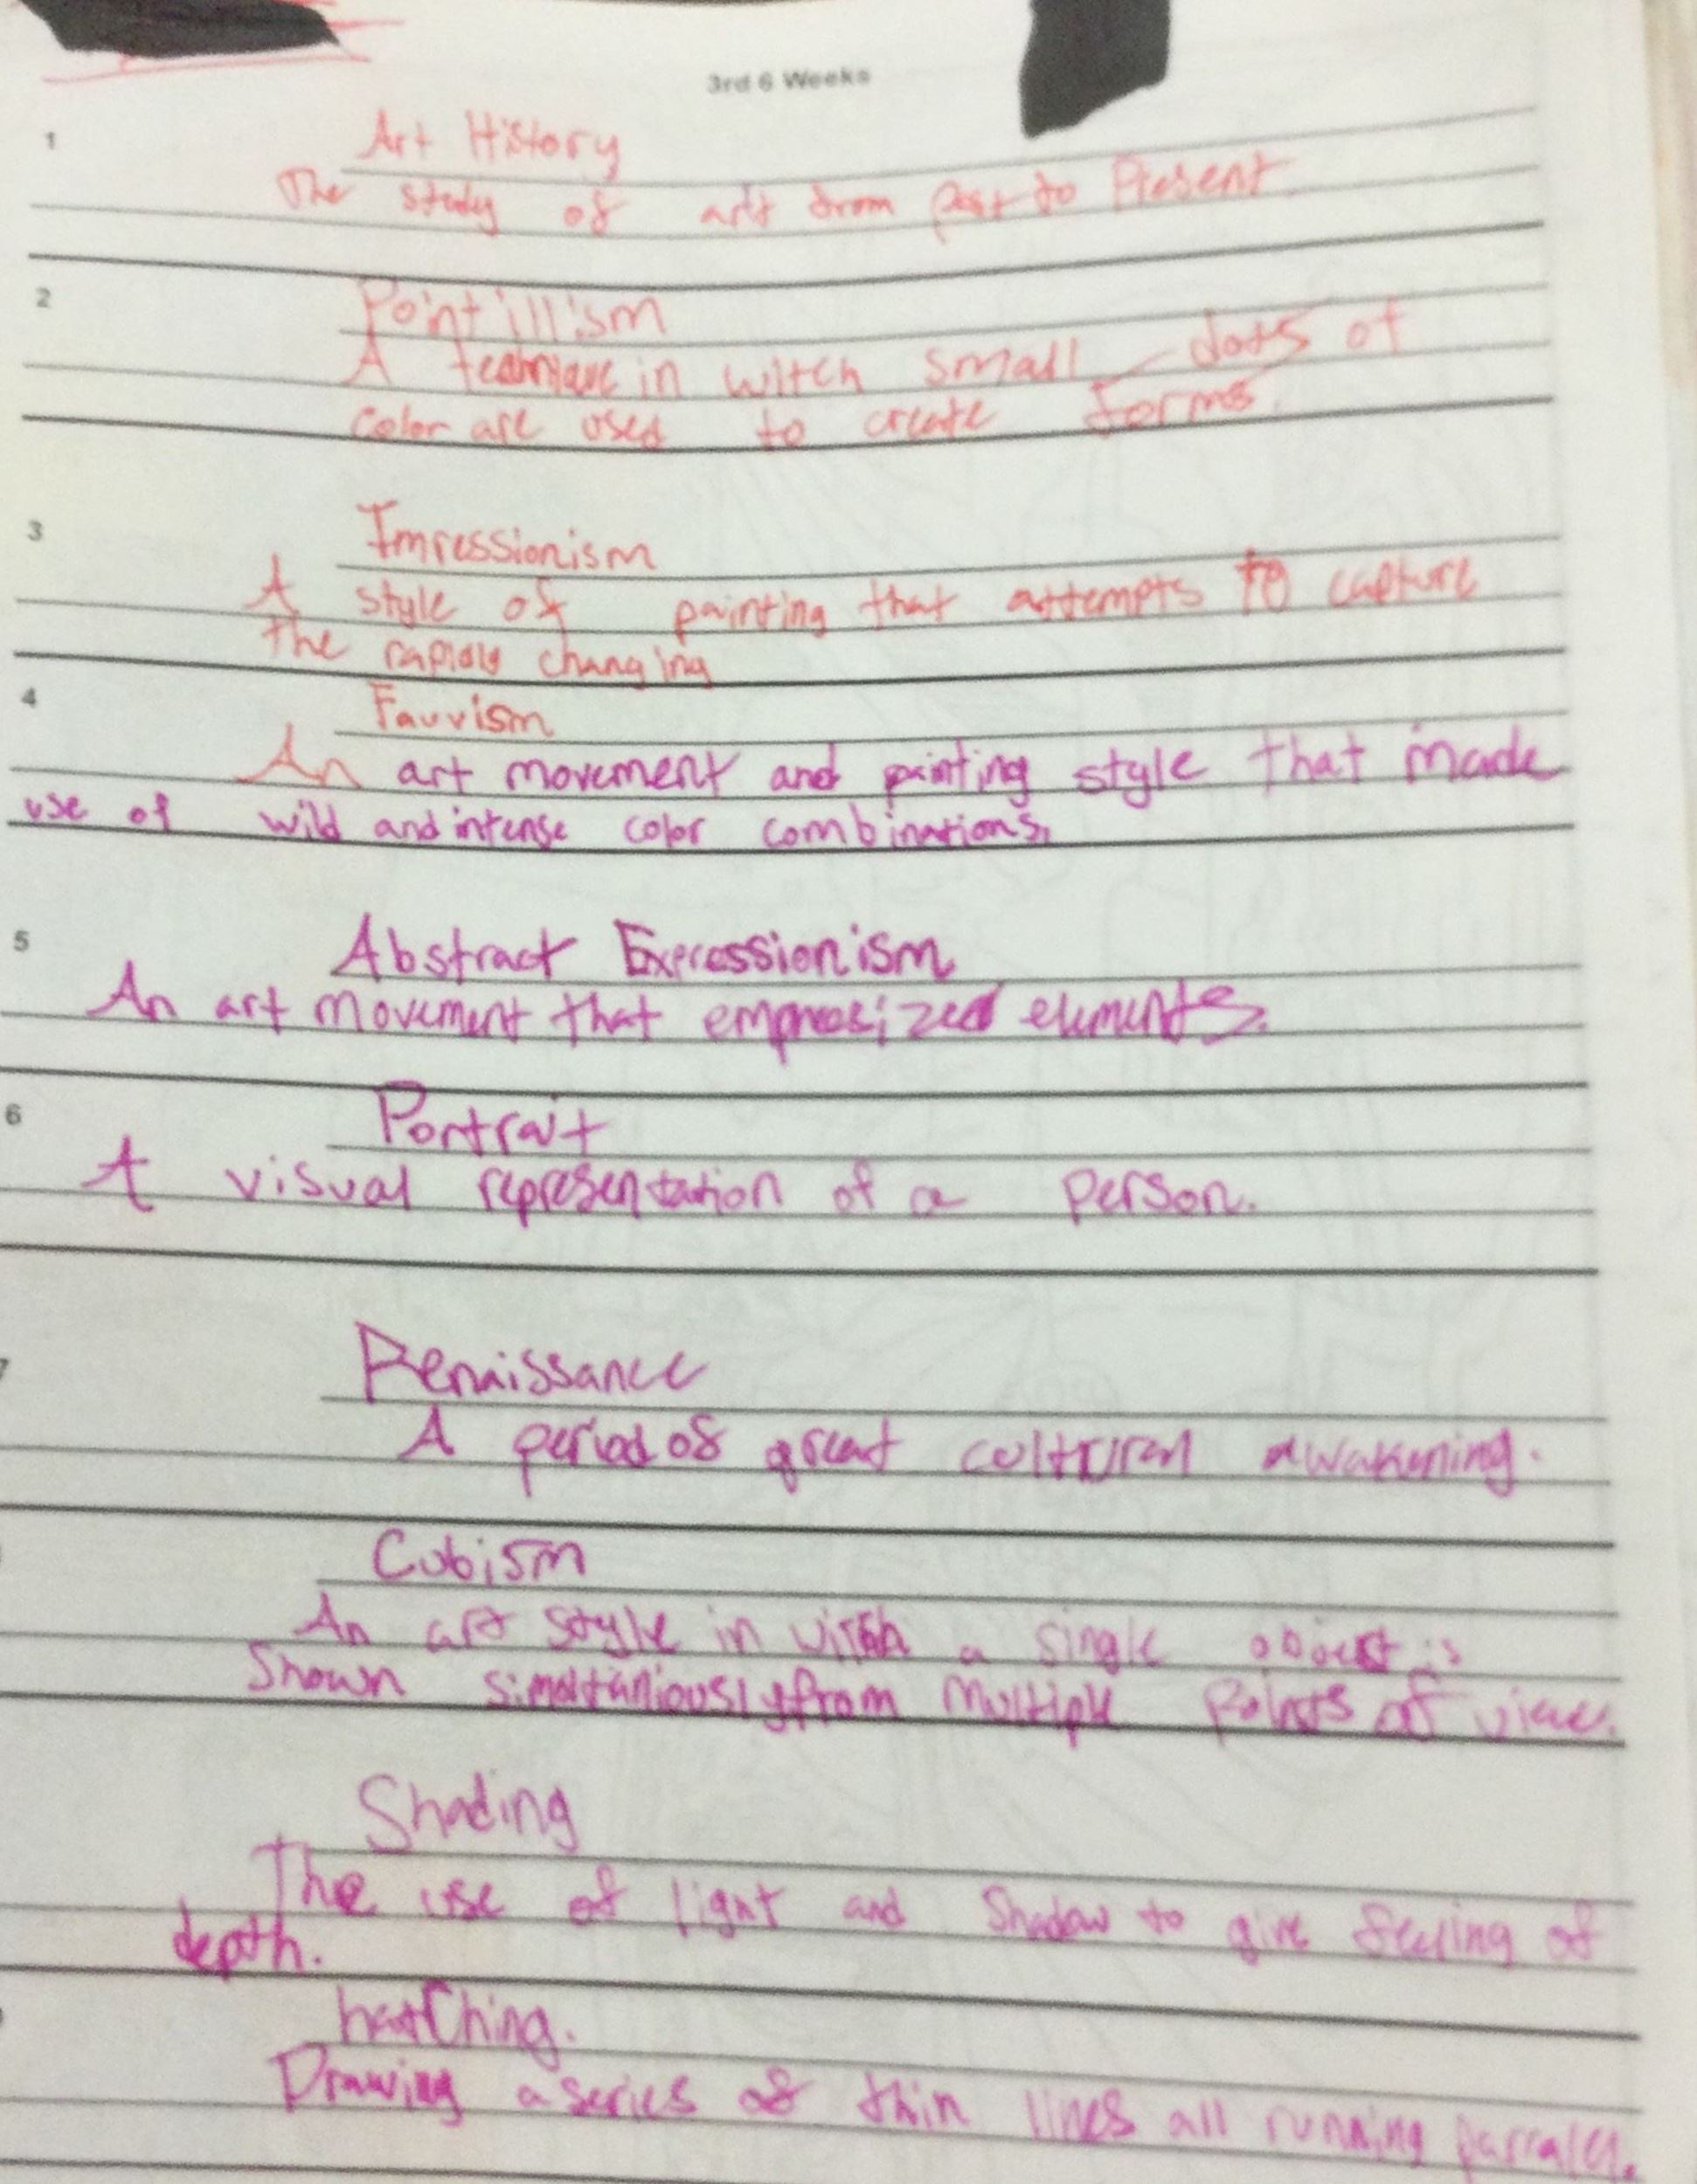 3rd 6 Weeks
1 Art History
The study of art from past to Present
2 Pointillism
A technique in witch small dots of
color are used to create forms.
3 Imressionism
A style of painting that attempts to capture
the rapidly changing
4 Fauvism
An art movement and painting style that made
use of wild and intense color combinations.
5 Abstract Expressionism
An art movement that emphasized elements.
6 Portrait
A visual representation of a person.
7 Renaissance
A period of great cultural awakening.
Cubism
An art style in witch a single object is
Shown simultaniously from multiple points of view.
Shading
The use of light and Shadow to give feeling of
depth.
hatching.
Drawing a series of thin lines all running parralel.